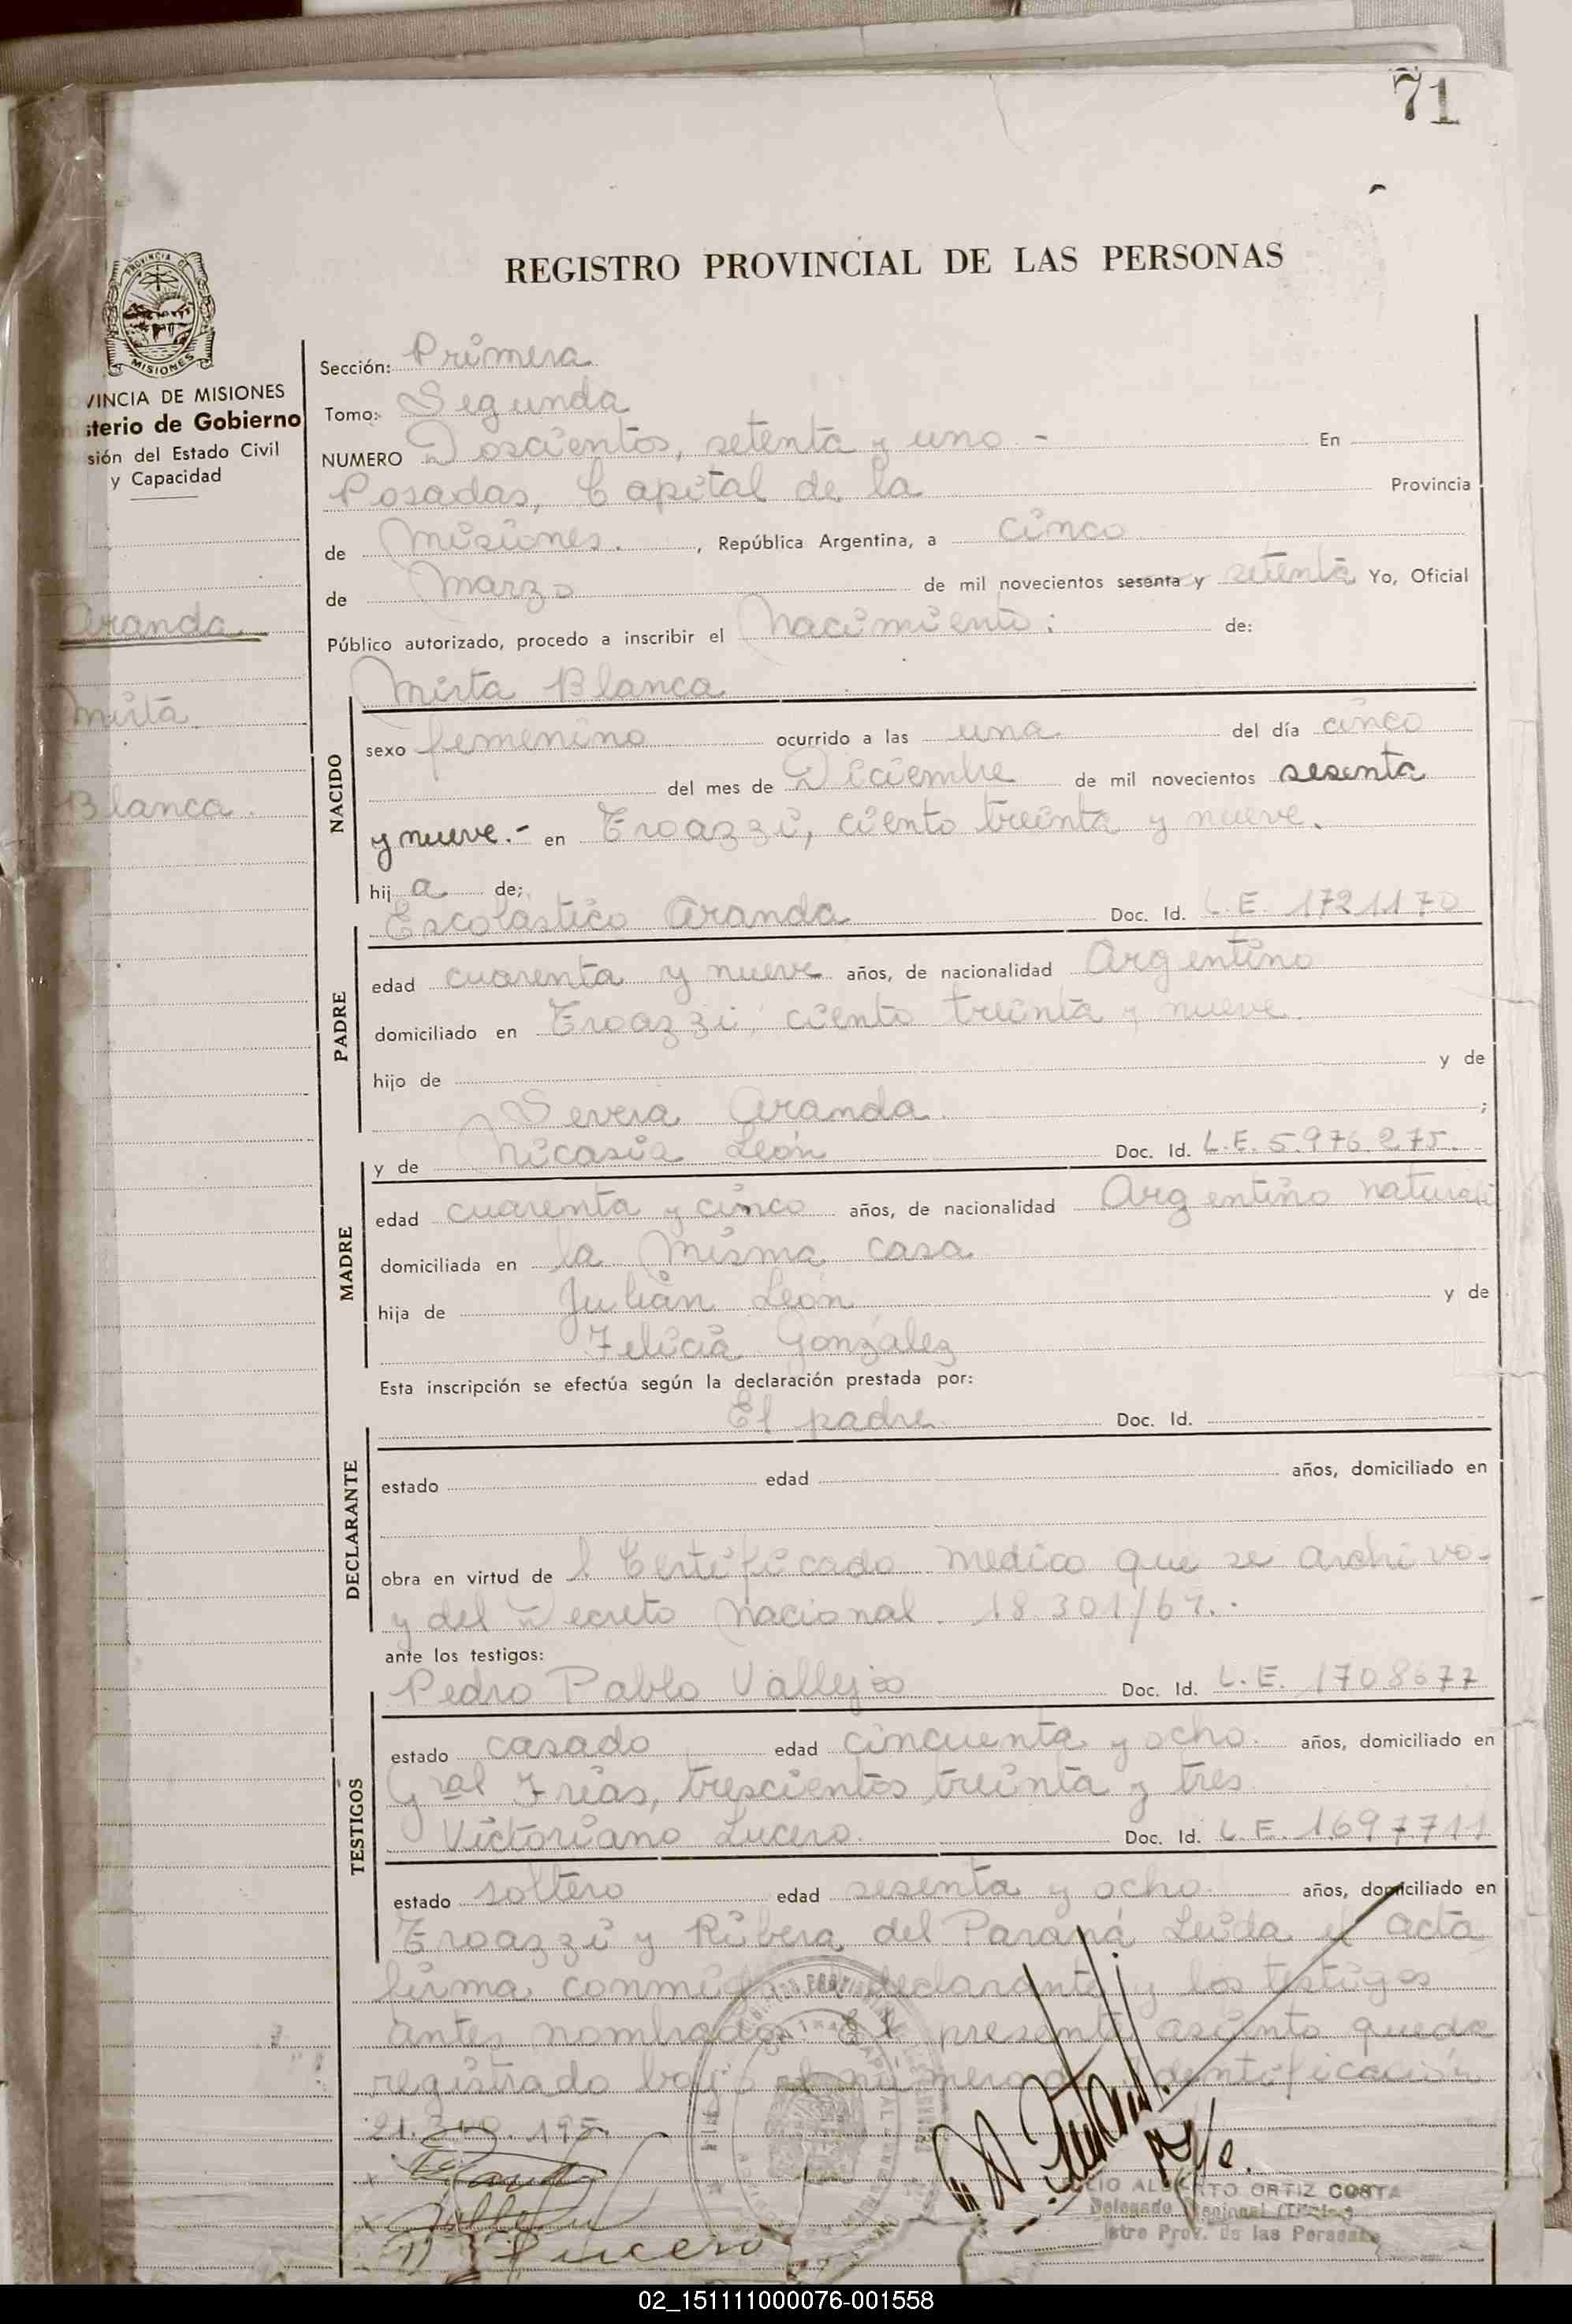 71
REGISTRO PROVINCIAL DE LAS PERSONAS
MISIONES
VINCIA DE MISIONES
sterio de Gobierno
sión del Estado Civil
y Capacidad
Aranda
Mirta
Blanca.
Sección: Primera
Tomo: Segunda
NUMERO Doscientos, setenta y uno - En
Posadas, Capital de la Provincia
de Misiones. , República Argentina, a cinco
de Marzo de mil novecientos sesenta y setenta Yo, Oficial
Público autorizado, procedo a inscribir el Nacimiento: de:
Mirta Blanca
NACIDO
sexo femenino ocurrido a las una del día cinco
del mes de Diciembre de mil novecientos sesenta
y nueve.- en Troazzi, ciento treinta y nueve.
hij a de;
Escolástico Aranda Doc. Id. L.E. 1721170
PADRE
edad cuarenta y nueve años, de nacionalidad Argentino
domiciliado en Troazzi, ciento treinta y nueve.
hijo de y de
Severa Aranda. ;
y de Nicasia León Doc. Id. L.E. 5.976.275.
MADRE
edad cuarenta y cinco años, de nacionalidad Argentino
domiciliada en la misma casa
hija de Julián León y de
Felicia González
Esta inscripción se efectúa según la declaración prestada por:
El padre Doc. Id.
DECLARANTE
estado edad años, domiciliado en
obra en virtud de l Certificado medico que se archivo-
y del Decreto Nacional. 18.301/69.
ante los testigos:
Pedro Pablo Vallejo Doc. Id. L.E. 1708677
TESTIGOS
estado casado edad cincuenta y ocho. años, domiciliado en
Gral Frias, trescientos treinta y tres
Victoriano Lucero. Doc. Id. L.E. 1697711
estado soltero edad sesenta y ocho. años, domiciliado en
Troazzi y Ribera del Paraná Leida el acta
firma conmigo el declarante y los testigos
antes nombrados. El presente asiento queda
registrado bajo el número de identificación
21.
Lucero
ALBERTO ORTIZ COSTA
Delegado Regional
istro Prov. de las Personas
02_151111000076-001558